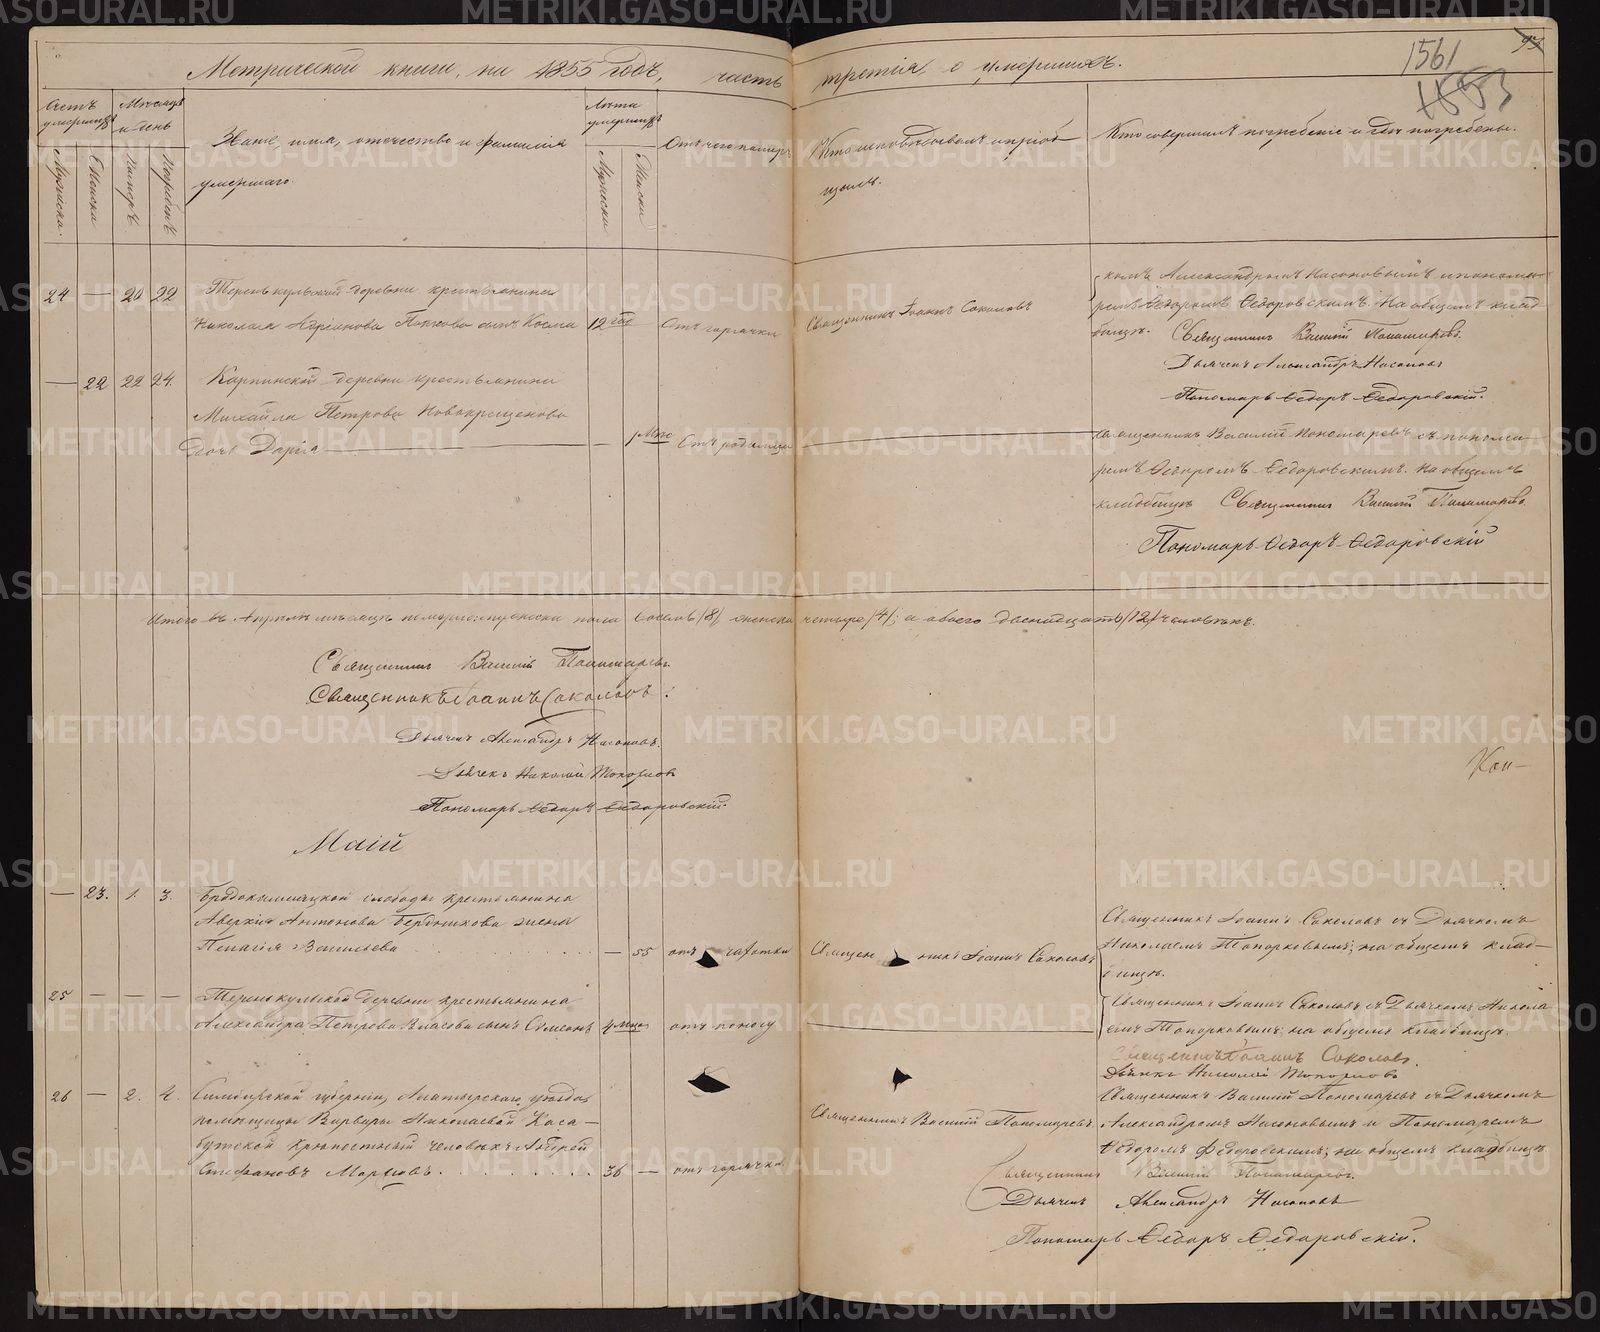 Метрической книги, на 1855 годъ, часть третія о умершихъ.
1561
93
1883
Счетъ умершихъ
Мужеска.
Женска
Мѣсяцъ и день
Умеръ
Погребенъ
Званіе, имя, отчество и фамилія
умершаго.
Лѣта умершихъ
Мужеска
Женска
Отъ чего померъ
Кто исповѣдывалъ и пріоб
щалъ.
Кто совершилъ погребеніе и гдѣ погребены.
24 — 20 22
деревни крестьянина
Николая Попова сынъ Косма 12 год Отъ горячки
Священникъ Іоаннъ Соколовъ
комъ Александромъ Насоновымъ и понома
ремъ Ѳедоромъ Ѳедоровскимъ. На общемъ клад
бищѣ. Священникъ Василій Пономаревъ.
Дьячекъ Александръ Насоновъ
Пономарь Ѳедоръ Ѳедоровскій.
— 22 22 24. Карпинской деревни крестьянина
Михайла Петрова Новокрещенова
дочь Дарія — — 1 мѣс Отъ родимца
Священникъ Василій Пономаревъ съ понома
ремъ Ѳедоромъ Ѳедоровскимъ. На общемъ
кладбищѣ Священникъ Василій Пономаревъ
Пономарь Ѳедоръ Ѳедоровскій
Итого въ Апрѣлѣ мѣсяцѣ померло: мужеска пола восемь /8/, женска четыре /4/; а обоего двенадцать /12/ человѣкъ.
Священникъ Василій Пономаревъ.
Священникъ Іоаннъ Соколовъ.
Дьячекъ Александръ Насоновъ.
Дьячекъ Николай Топорковъ
Пономарь Ѳедоръ Ѳедоровскій.
Маій
— 23. 1. 3. Бродокалмацкой слободы крестьянина
Аверкія Антонова Бердюгова жена
Пелагія Васильева — 55 отъ чахотки
Священникъ Іоаннъ Соколовъ
Священникъ Іоаннъ Соколовъ съ Дьячкомъ
Николаемъ Топорковымъ; на общемъ клад-
бищѣ.
25 — — — деревни крестьянина
Александра Петрова Власова сынъ Симеонъ 4 мѣс отъ поносу
Священникъ Іоаннъ Соколовъ съ Дьячкомъ Никола
емъ Топорковымъ; на общемъ кладбищѣ.
Священникъ Іоаннъ Соколовъ.
Дьячекъ Николай Топорковъ
26 — 2. 4. Симбирской губерніи, Алатырскаго уѣзда,
помѣщицы Варвары Николаевой
крѣпостный человѣкъ Андрей
Стефановъ 36 — отъ горячки
Священникъ Василій Пономаревъ.
Священникъ Василій Пономаревъ съ Дьячкомъ
Александромъ Насоновымъ и Пономаремъ
Ѳедоромъ Ѳедоровскимъ; на общемъ кладбищѣ
Священникъ Василій Пономаревъ.
Дьячекъ Александръ Насоновъ
Пономарь Ѳедоръ Ѳедоровскій.
METRIKI.GASO-URAL.RU